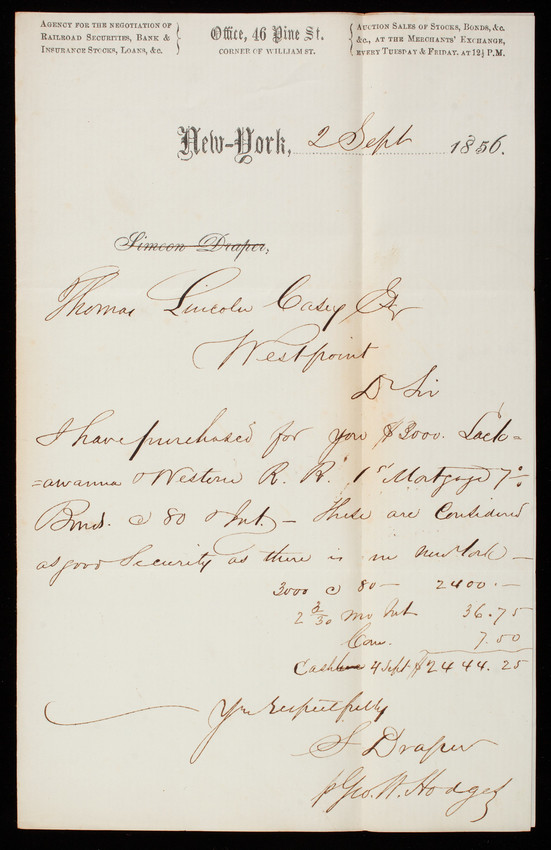 AGENCY FOR THE NEGOTIATION OF
RAILROAD SECURITIES, BANK &
INSURANCE STOCKS, LOANS, &c.
Office, 46 Pine St.
CORNER OF WILLIAM ST.
AUCTION SALES OF STOCKS, BONDS, &c.
&c., AT THE MERCHANTS' EXCHANGE,
EVERY TUESDAY & FRIDAY. AT 12½ P.M.
New-York, 2 Sept 1856.
Simeon Draper,
Thomas Lincoln Casey Esqr
Westpoint
D Sir
I have purchased for you $3000. Lack=
=awanna & Western R. R. 1st Mortgage 7%
Bonds. @ 80 & Int. – These are Considered
as good Security as there is in New York –
3000 @ 80 – 2400.–
2 3/30 mo Int 36.75
Com. 7.50
Cash 4 Sept $2444.25
Yrs respectfully
S Draper
p Geo. W. Hodges